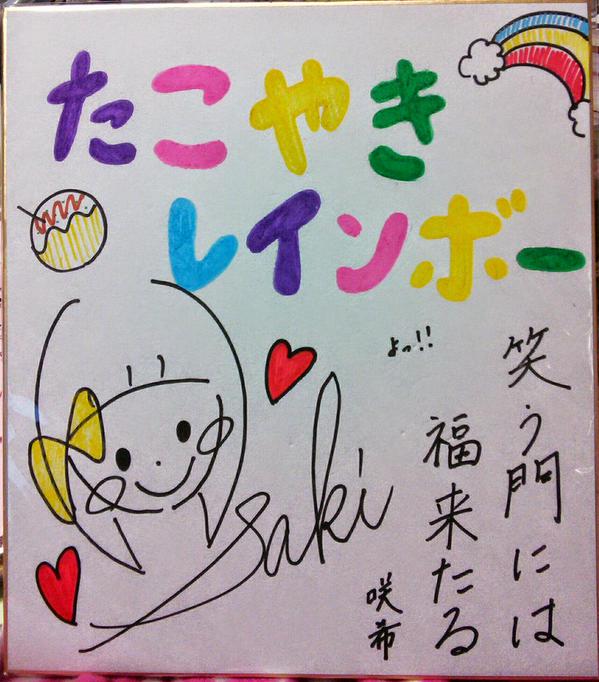 たこやき
レインボー
よっ!!
笑う門には
福来たる
Saki
咲希